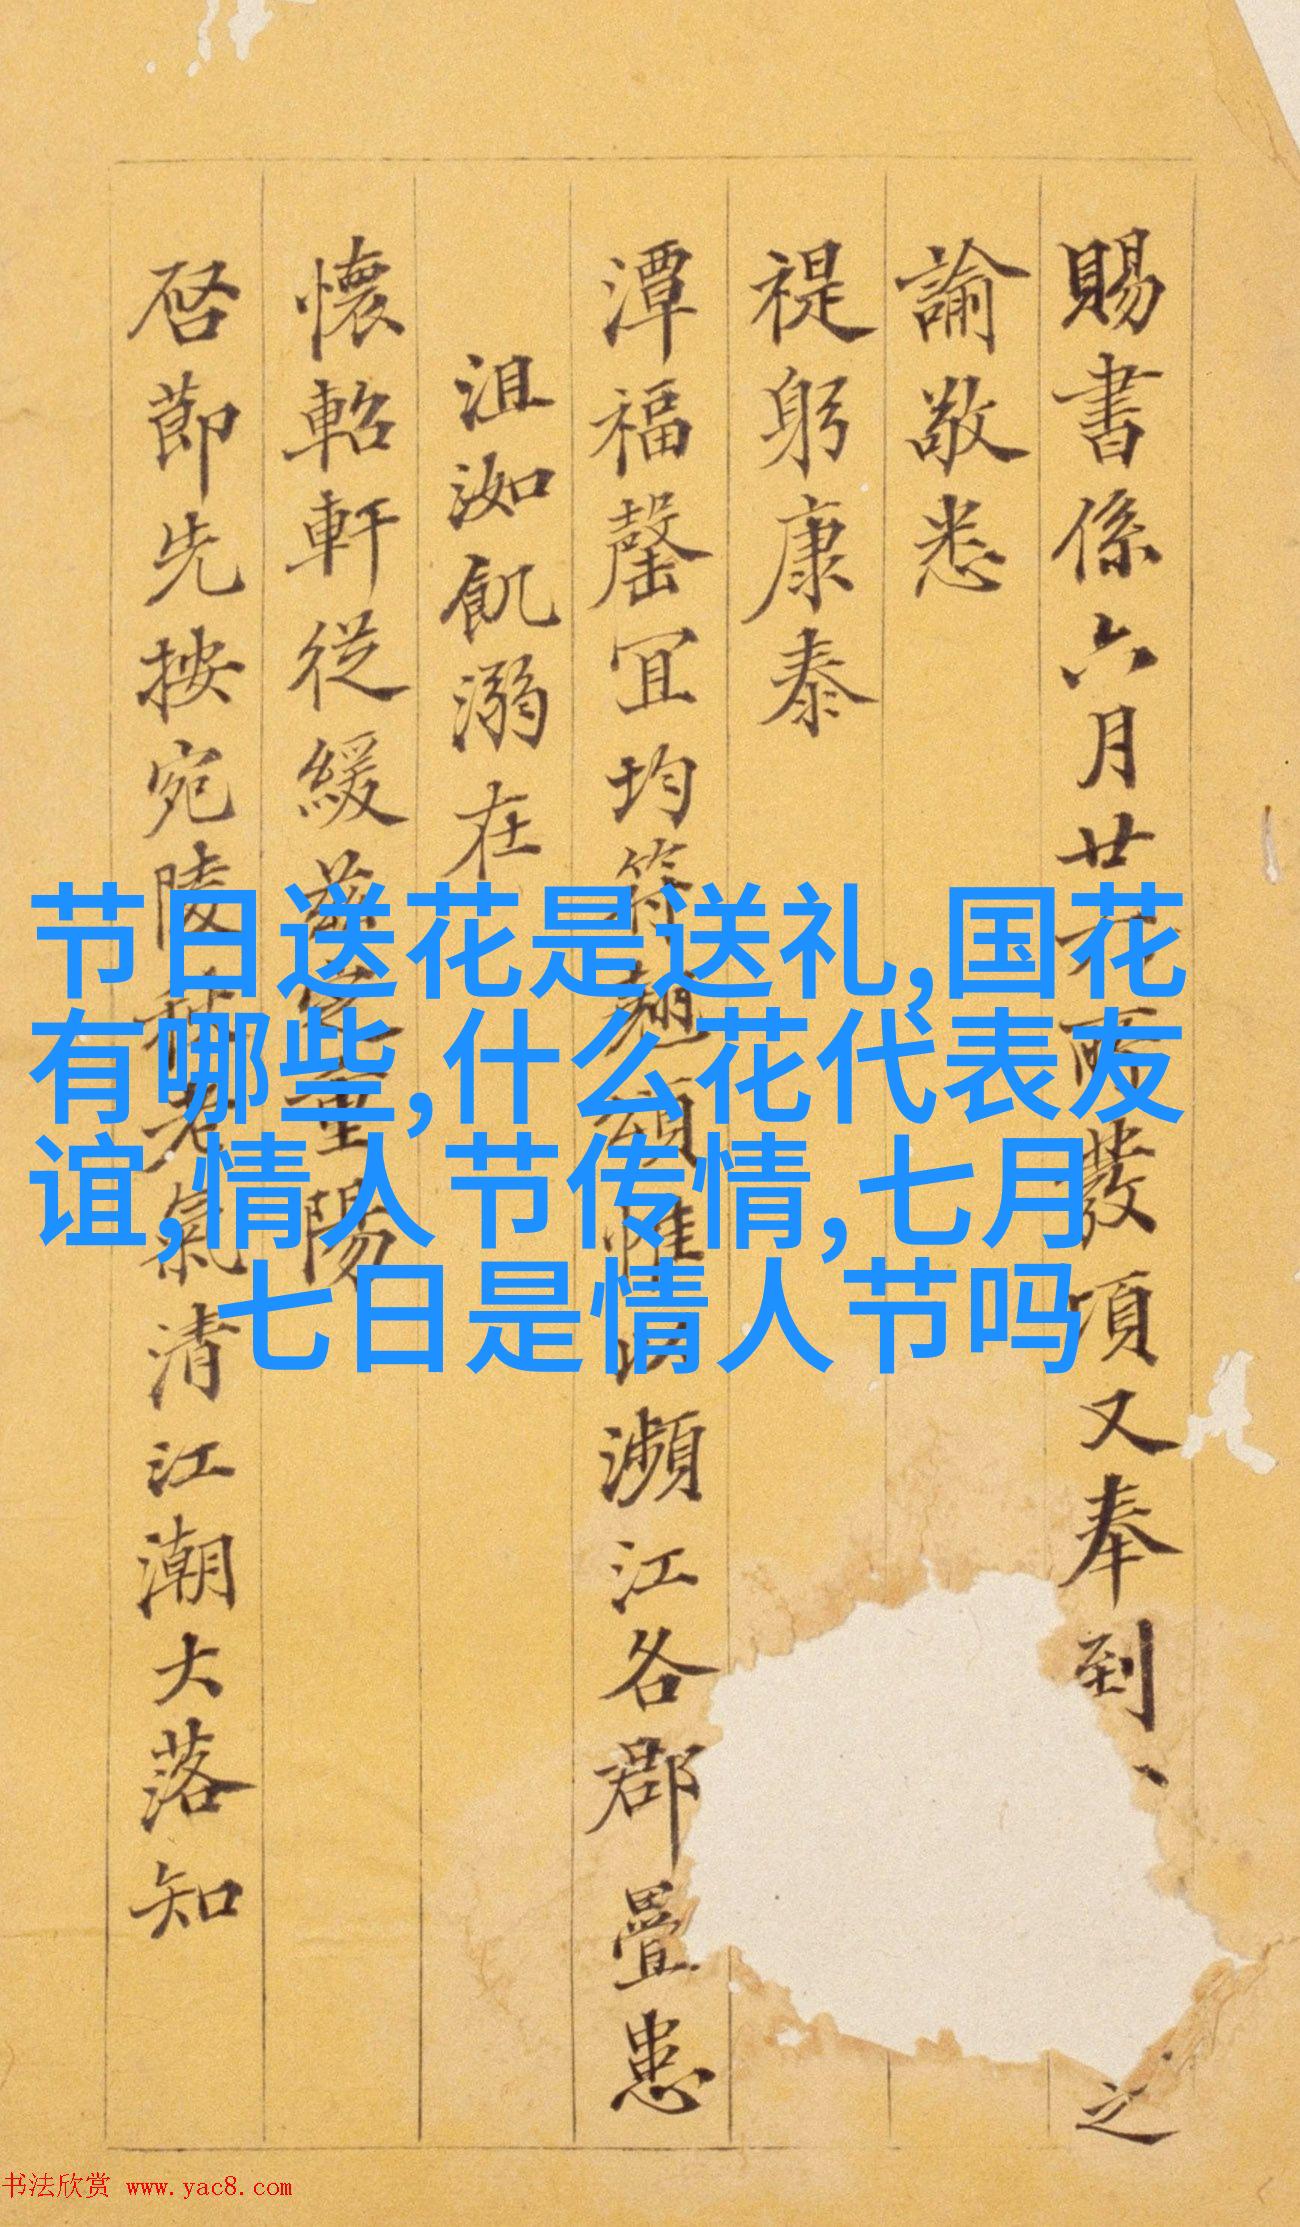 賜書係六月廿
發頃又奉到
之
諭敬悉
禔躬康泰
潭福罄宜均符
瀕江各郡疊患
沮洳飢溺在
懷軺軒從緩
陽
啓節先按宛陵
氣清江潮大落知
节日送花是送礼,国花
有哪些,什么花代表友
谊,情人节传情,七月
七日是情人节吗
书法欣赏 www.yac8.com